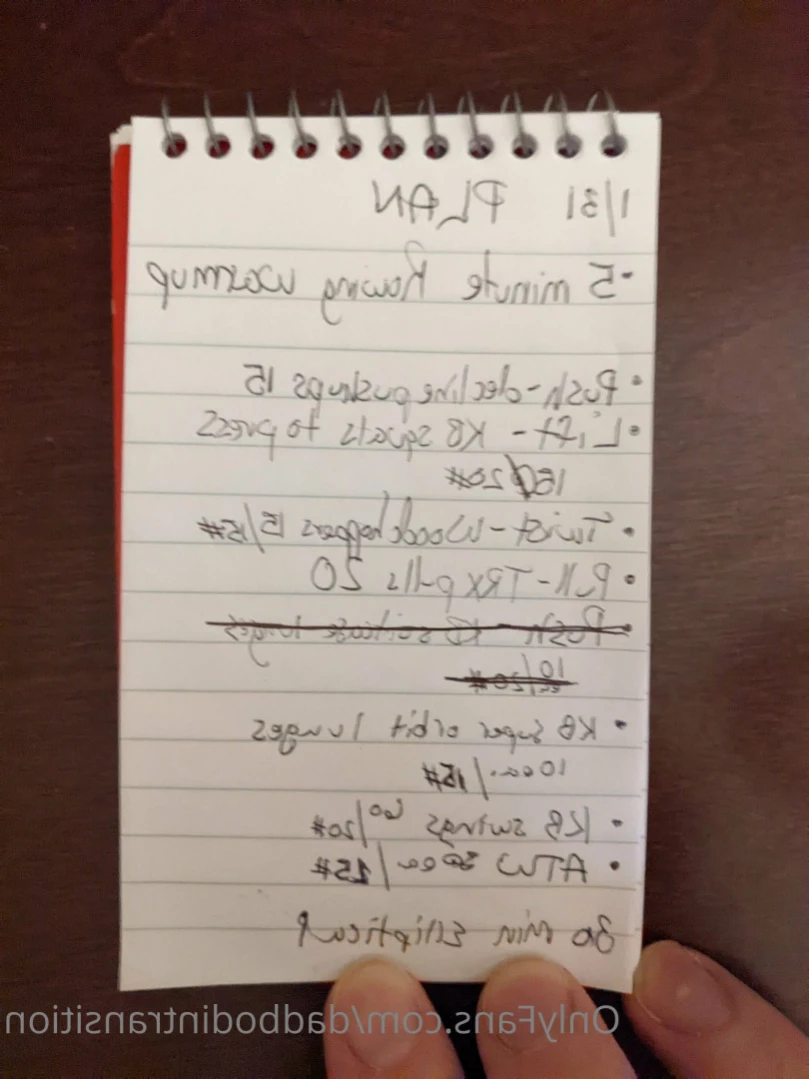 1/31 PLAN
- 5 minute Rowing warmup
• Push - decline pushups 15
• Lift - KB squats to press
15@20#
• Twist - Woodchoppers 15/15#
• Pull - TRX pulls 20
Push - KB suitcase lunges
10/20#
• KB super orbit lunges
10 ea./15#
• KB swings 60/20#
• ATW 30 ea/25#
30 min Elliptical
OnlyFans.com/dadbodintransition